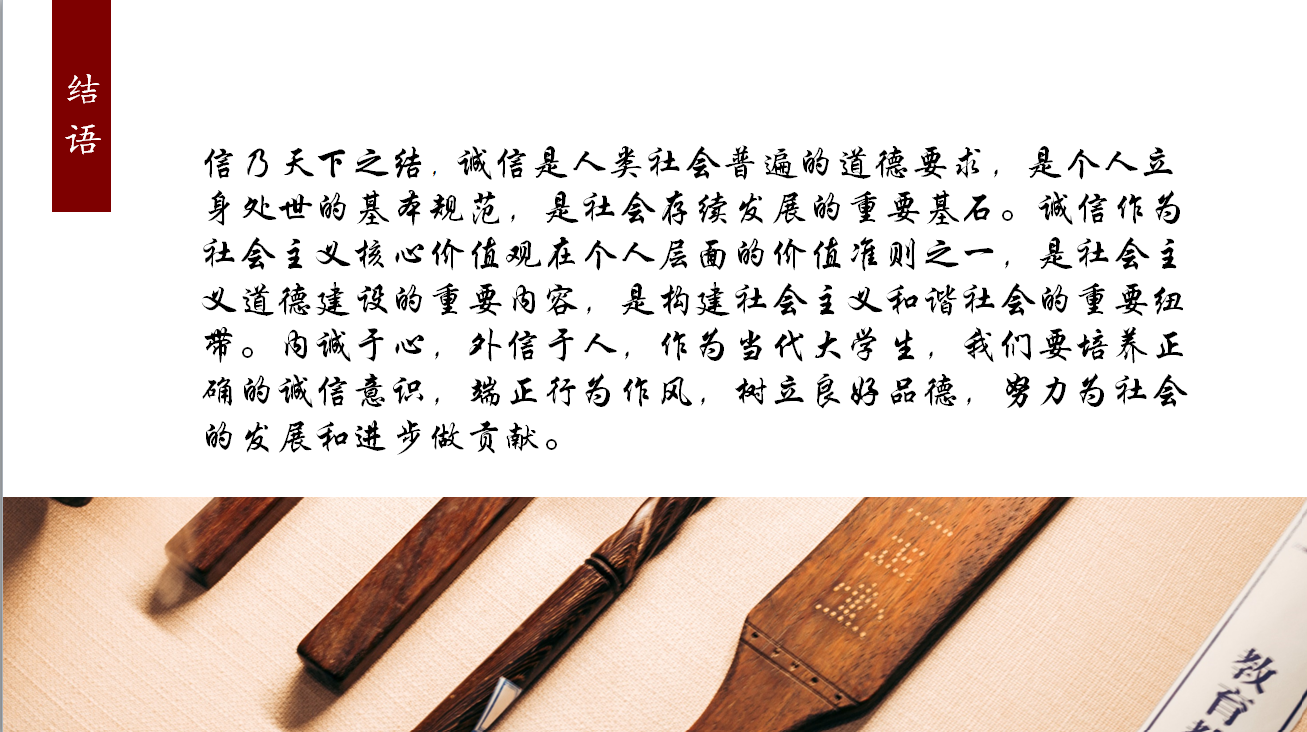 结
语
信乃天下之结，诚信是人类社会普遍的道德要求，是个人立
身处世的基本规范，是社会存续发展的重要基石。诚信作为
社会主义核心价值观在个人层面的价值准则之一，是社会主
义道德建设的重要内容，是构建社会主义和谐社会的重要纽
带。内诚于心，外信于人，作为当代大学生，我们要培养正
确的诚信意识，端正行为作风，树立良好品德，努力为社会
的发展和进步做贡献。
教育